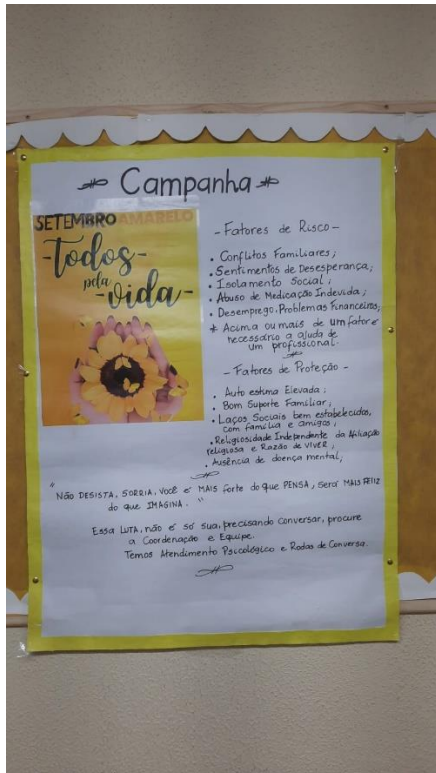 Campanha
SETEMBRO AMARELO
-Todos-
pela
-vida-
- Fatores de Risco -
• Conflitos Familiares;
• Sentimentos de Desesperança;
• Isolamento Social;
• Abuso de Medicação Indevida;
• Desemprego, Problemas Financeiros;
* Acima ou mais de um fator é
necessário a ajuda de
um profissional.
- Fatores de Proteção -
• Auto estima Elevada;
• Bom Suporte Familiar;
• Laços Sociais bem estabelecidos,
com família e amigos;
• Religiosidade Independente da Afiliação
religiosa e Razão de VIVER;
• Ausência de doença mental;
"NÃO DESISTA, SORRIA, VOCÊ É MAIS forte do que PENSA, será MAIS FELIZ
do que IMAGINA."
Essa LUTA, não é só sua, precisando conversar, procure
a Coordenação e Equipe.
Temos Atendimento Psicológico e Rodas de Conversa.